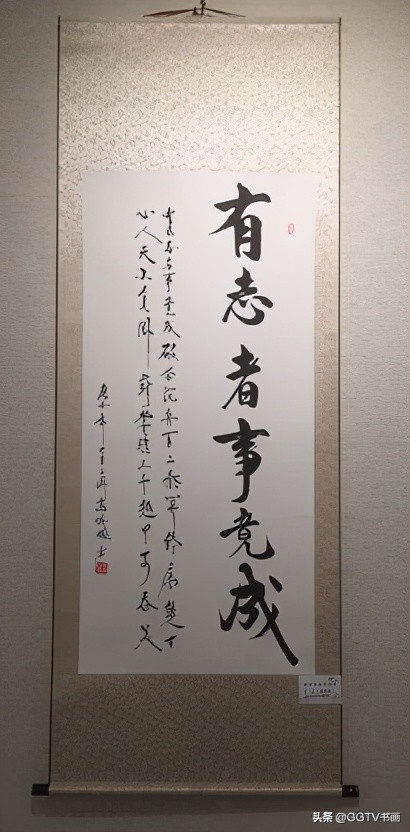 有志者事竟成
有志者事竟成破釜沉舟百二秦终属楚
心人天不负卧薪尝胆三千越甲可吞吴
头条 @GGTV书画